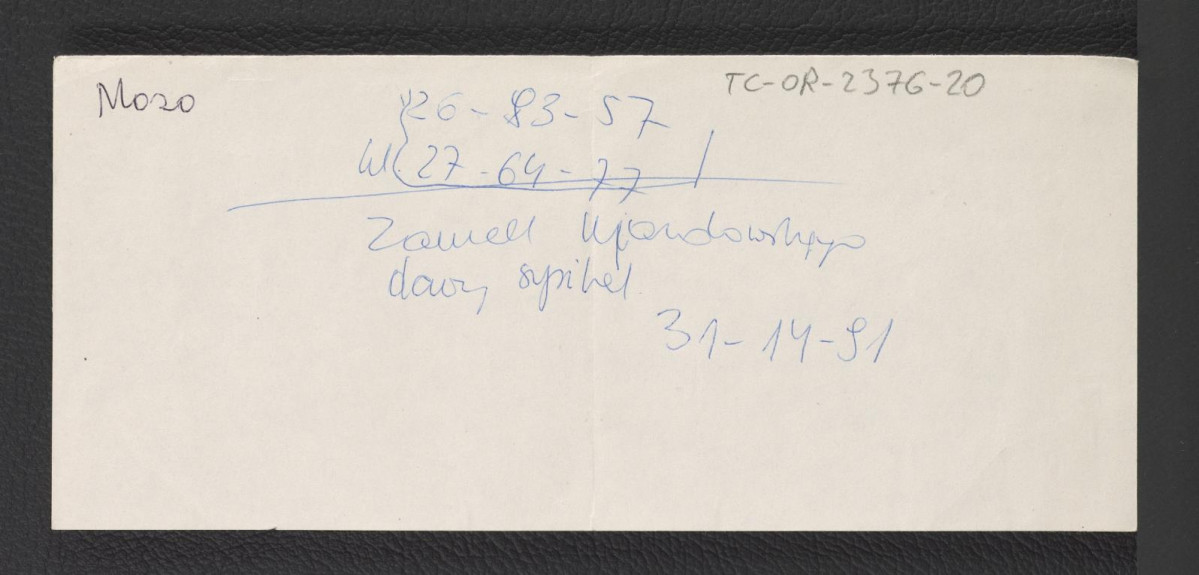 Mozo
TC-OR-2376-20
26-83-57
W 27-64-77
Zamek Ujazdowskiego
dawny szpital
31-14-91